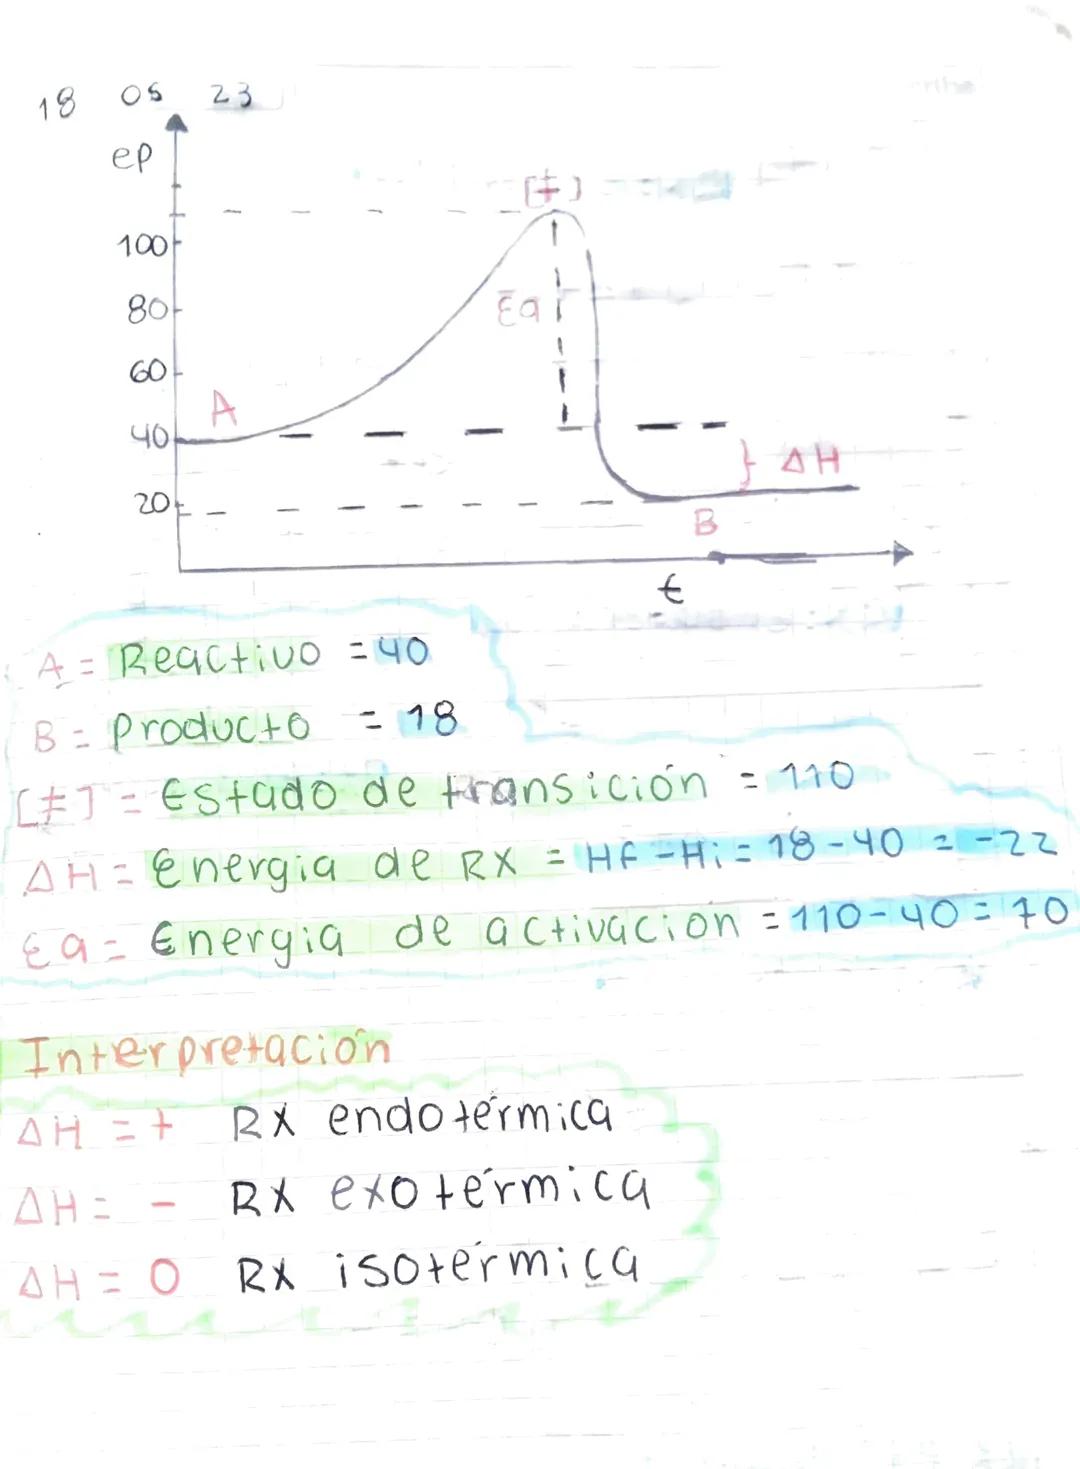 18 05 23
ep
[‡]
100
80
Ea
60
A
40
ΔH
20
B
t
A = Reactivo = 40
B = Producto = 18
[‡] = Estado de transición = 110
ΔH = Energia de RX = Hf - Hi = 18 - 40 = -22
Ea = Energia de activacion = 110 - 40 = 70
Interpretación
ΔH = + RX endotérmica
ΔH = - RX exotérmica
ΔH = 0 RX isotérmica